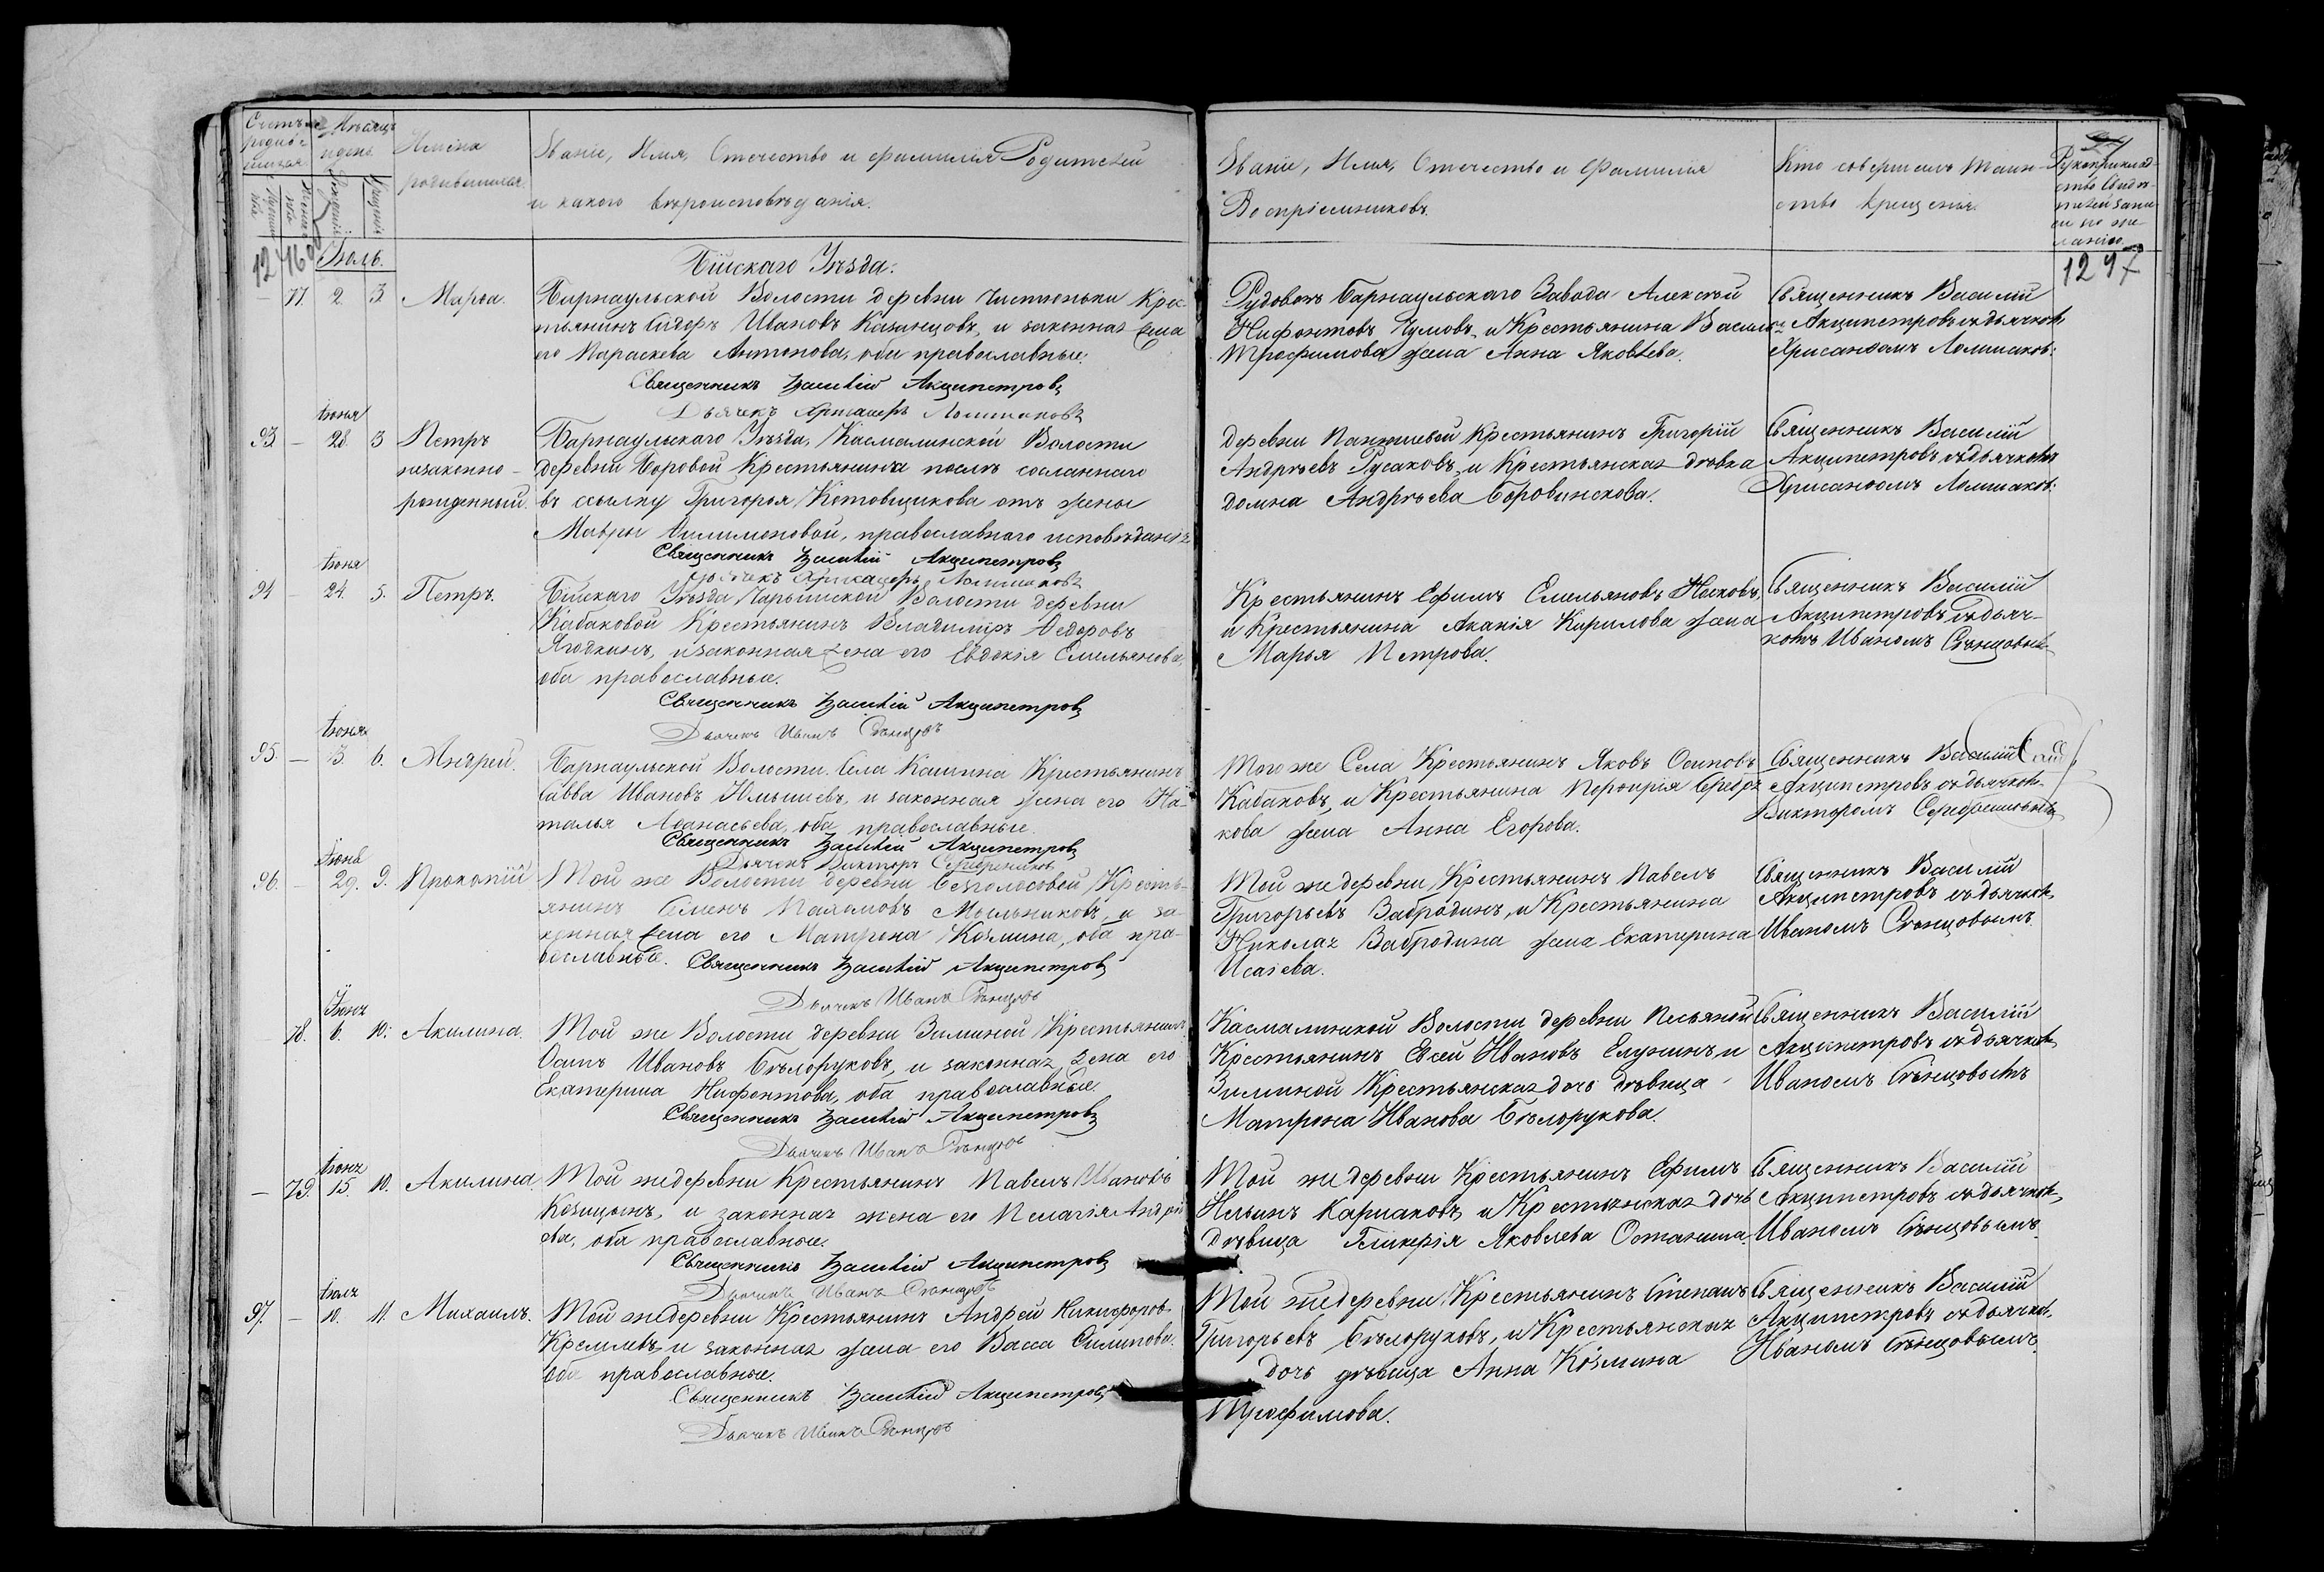 Счетъ родив-
шихся
Мѣсяцъ
и день
Имена
родившихся
Званіе, Имя, Отчество и фамилія Родителей
и какого вѣроисповѣданія.
Званіе, Имя, Отчество и Фамилія
Воспріемниковъ.
Кто совершилъ таин-
ство крещенія.
Рукоприклад-
ство свидѣ-
телей записи
по же-
ланію.
1297
Іюль.
Бійскаго Уѣзда:
77. 2. 3. Марѳа.
Барнаульской Волости деревни Чистюньки Крес-
тьянинъ Сидоръ Ивановъ Казанцовъ, и законная жена
его Параскева Антонова, оба православные.
Священникъ Василій Акципетровъ
Дьячекъ Хрисанфъ Ломшаковъ
Рудовозъ Барнаульскаго Завода Алексѣй
Нифонтовъ Чумовъ, и Крестьянина Василья
Трофимова жена Анна Яковлева.
Священникъ Василій
Акципетровъ съ дьячкомъ
Хрисанѳомъ Ломшаков:
Іюня
93. — 28. 3 Петръ
незаконно-
рожденный.
Барнаульскаго Уѣзда, Касмалинской Волости
деревни Боровой Крестьянина послѣ сосланнаго
въ ссылку Григорья Котовщикова отъ жены
Мавры Филимоновой, православнаго исповѣданія
Священникъ Василій Акципетровъ
Дьячекъ Хрисанфъ Ломшаковъ
деревни Панюшевой Крестьянинъ Григорій
Андрѣевъ Русаковъ, и Крестьянская дѣвка
Домна Андрѣева Боровинскова.
Священникъ Василій
Акципетровъ съ дьячкомъ
Хрисанѳомъ Ломшаков:
Іюня
94 — 24. 5. Петръ.
Бійскаго Уѣзда Чарышской Волости деревни
Кабаковой Крестьянинъ Владиміръ Ѳедоровъ
Ягодкинъ, и законная жена его Евдокія Емельянова,
оба православные.
Священникъ Василій Акципетровъ
Дьячекъ Иванъ Сѣнцовъ
Крестьянинъ Ефимъ Емельяновъ
и Крестьянина Акакія Кирилова жена
Марья Петрова.
Священникъ Василій
Акципетровъ съ дьяч-
комъ Иваномъ Сѣнцовымъ
Іюня
95. — 13. 6. Андрей.
Барнаульской Волости Села Кашина Крестьянинъ
Савва Ивановъ и законная жена его На-
талья Аѳанасьева, оба православные.
Священникъ Василій Акципетровъ
Дьячекъ Викторъ Серебрениковъ
Того же Села Крестьянинъ Яковъ Осиповъ
Кабаковъ, и Крестьянина Порфирія Сереб-
кова жена Анна Егорова.
Священникъ Василій
Акципетровъ съ дьячком
Викторомъ Серебрениковымъ
Іюня
96. — 29. 9. Прокопій
Той же Волости деревни Безголосовой Кресть-
янинъ Семенъ Мыльниковъ, и за-
конная жена его Матрона Козмина, оба пра-
вославные. Священникъ Василій Акципетровъ
Дьячекъ Иванъ Сѣнцовъ
Той же деревни Крестьянинъ Павелъ
Григорьевъ Забродинъ, и Крестьянина
Николая Забродина жена Екатерина
Исаева.
Священникъ Василій
Акципетровъ съ дьячком
Иваномъ Сѣнцовымъ
Іюня
78. 6. 10. Акилина.
Той же Волости деревни Зиминой Крестьянинъ
Осипъ Ивановъ Бѣлоруковъ, и законная жена его
Екатерина Нифонтова, оба православные.
Священникъ Василій Акципетровъ
Дьячекъ Иванъ Сѣнцовъ
Касмалинской Волости деревни Песьяной
Крестьянинъ Евсей Ивановъ Елунинъ, и
Зиминой Крестьянская дочь дѣвица
Матрона Иванова Бѣлорукова.
Священникъ Василій
Акципетровъ съ дьячком
Иваномъ Сѣнцовымъ
Іюня
— 79. 15. 10. Акилина.
Той же деревни Крестьянинъ Павелъ Ивановъ
Козицынъ, и законная жена его Пелагія Андрѣ-
ева, оба православные.
Священникъ Василій Акципетровъ
Дьячекъ Иванъ Сѣнцовъ
Той же деревни Крестьянинъ Ефимъ
Ильинъ Кармаковъ, и Крестьянская дочь
дѣвица Гликерія Яковлева Останина.
Священникъ Василій
Акципетровъ съ дьячком
Иваномъ Сѣнцовымъ
Іюля
97. — 10. 11. Михаилъ.
Той же деревни Крестьянинъ Андрей Никифоровъ
Кремлевъ, и законная жена его Васса Филипова
оба православные.
Священникъ Василій Акципетровъ
Дьячекъ Иванъ Сѣнцовъ
Той же деревни Крестьянинъ Степанъ
Григорьевъ Бѣлоруковъ, и Крестьянская
дочь дѣвица Анна Козмина
Трофимова.
Священникъ Василій
Акципетровъ съ дьячком
Иваномъ Сѣнцовымъ